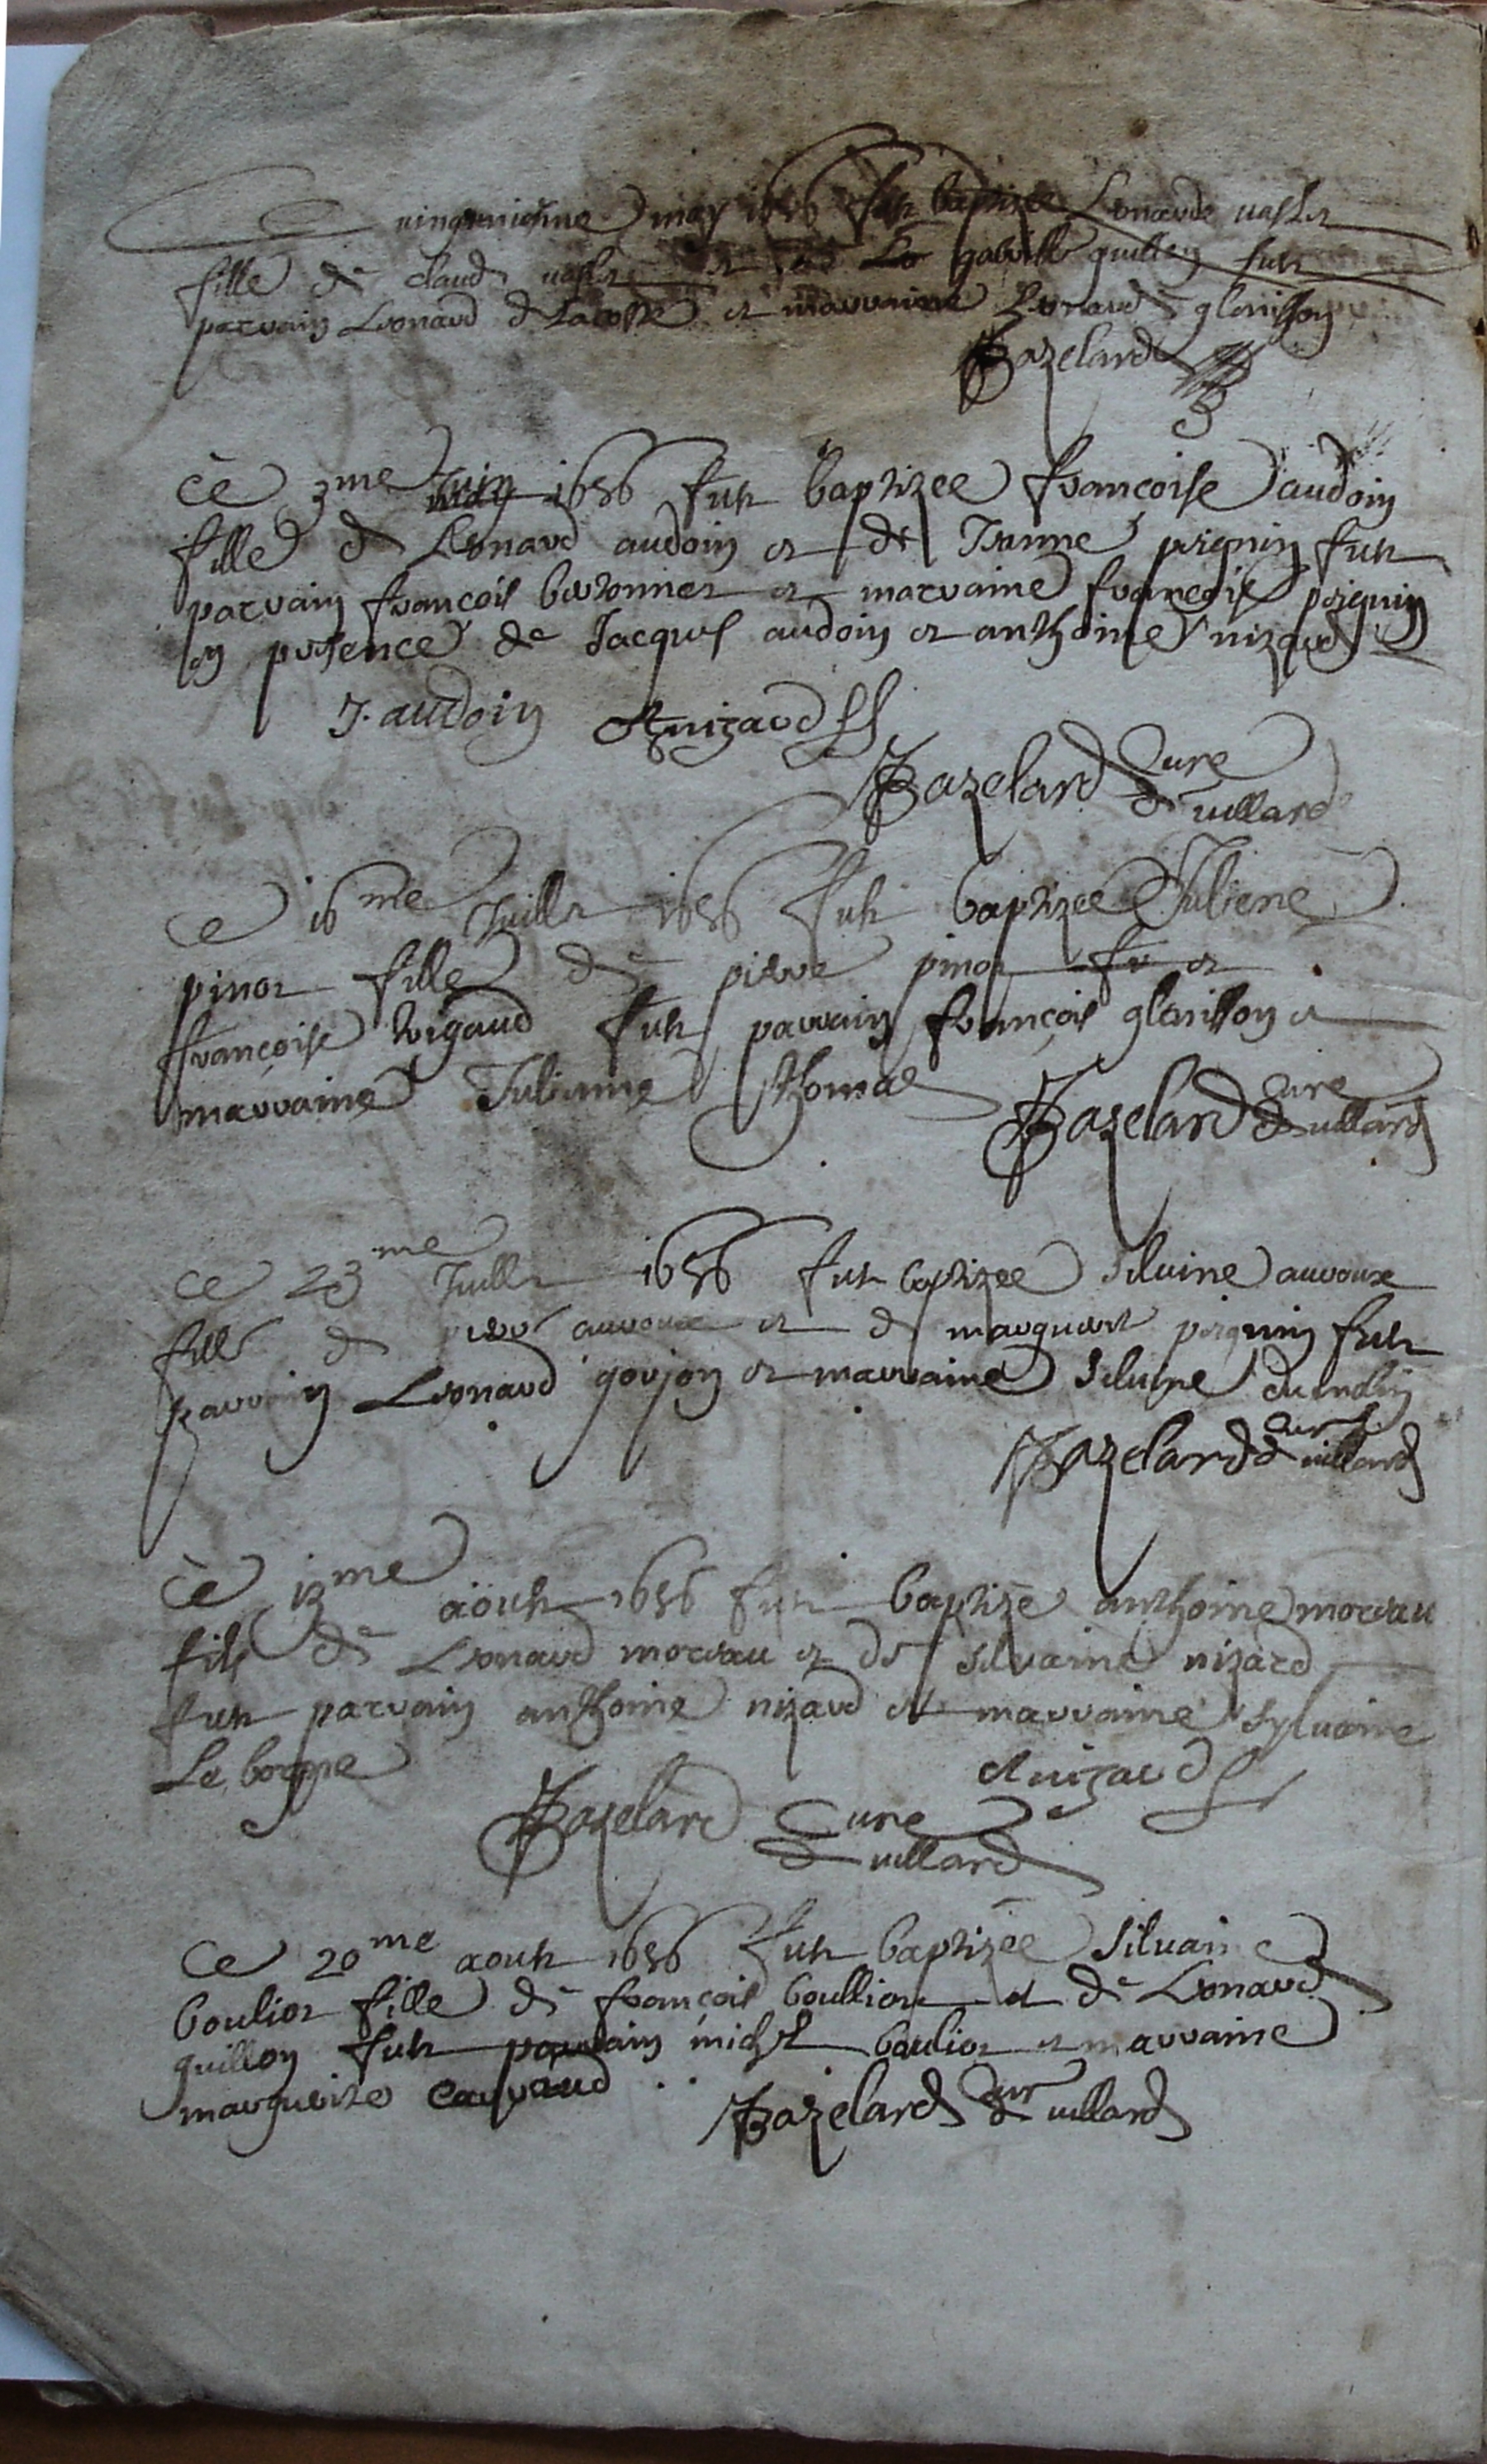 Ce vingtniesme may 1656 fut baptizee Leonarde
fille de claude et de gabrielle guillon fut
parrain Leonard delacoste et marraine Leonarde glenisson
Bazelard
Ce 3me Juin 1656 fut baptizee françoise audoin
fille de Leonard audoin et de Jeanne peignin fut
parrain françois et marraine françoise peignin
en presence de Jacques audoin et anthoine nizaud
J. audoin A nizaud
Bazelard Cure
de villard
Ce 16me Juillet 1656 fut baptizee Juliene
pinot fille de pierre pinot et
françoise rigaud fut parrain françois glenisson et
marraine Julienne thomas Bazelard Cure
de villard
Ce 23me Juillet 1656 fut baptizee Silvine auvoux
fille de pierre auvoux et de marguerite peignin fut
parrain Leonard goujon et marraine Silvine dumolin
Bazelard Cure
de villard
Ce 13me aoust 1656 fut baptizé anthoine moreau
fils de Leonard moreau et de Silvaine nizard
fut parrain anthoine nizaud et marraine Sylvaine
Le borgne A nizaud
Bazelard Cure
de villard
Ce 20me aoust 1656 fut baptizée Silvaine
boulior fille de françois boullior et de Leonarde
guillon fut parrain michel boulior et marraine
marguerite Bazelard Cure de villard